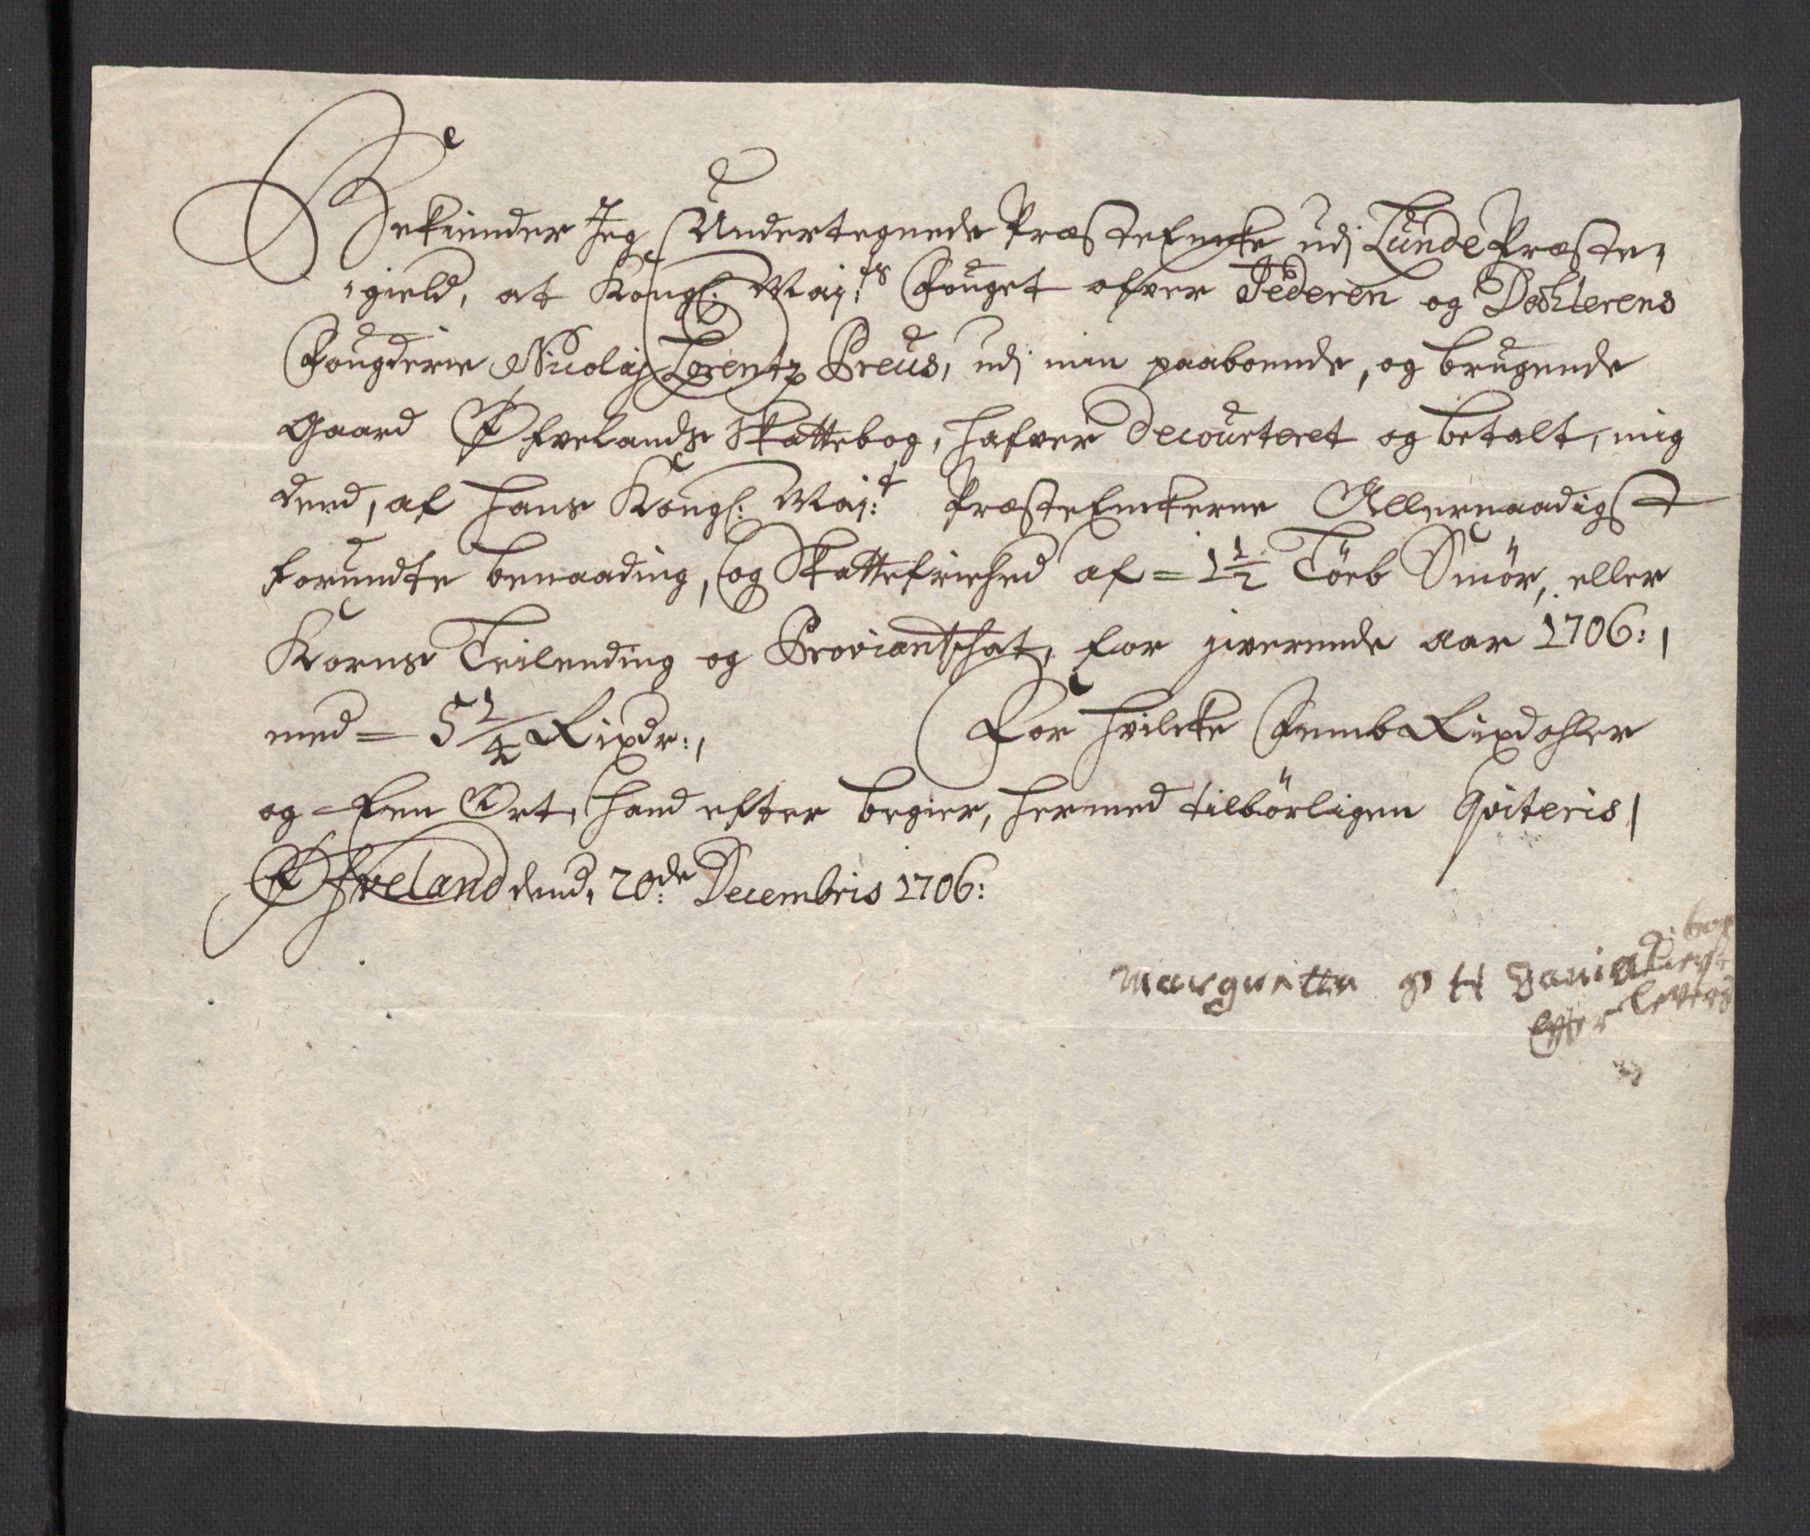 Bekiender Jeg Undertegnede PræsteEncke udj Lunde Præste,
,gield, at Kongl: Maj:ts Fouget ofver Jederen og Dahlerens
Fougderie Nicolaj Lorentz Preus, udj min paaboende, og brugende
Gaard Øfvelands Skattebog, hafver decourteret og betalt, mig
dend, af Hans Kongl: Maj:t PræsteEnckerne Allernaadigst
forundte benaading, og Skattefriehed af = 1½ Töeb Smör, eller
Korns Teilending og Proviantschat, for jnverende aar 1706:,
med = 5¼ Rixdr:, For hvilcke Femb Rixdahler
og = Een Ort, Hand efter begier, hermed tilbörligen Qviteris,
Øfveland dend, 20:de Decembris 1706:
Margretta Daniel
Efter levers